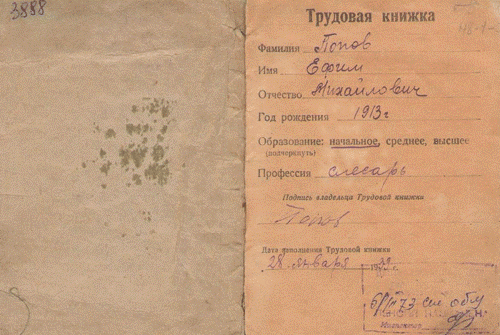 3888
Трудовая книжка
Фамилия Попов
Имя Ефим
Отчество Михайлович
Год рождения 1913 г
Образование: начальное, среднее, высшее
(подчеркнуть)
Профессия слесарь
Подпись владельца Трудовой книжки
Попов
Дата заполнения Трудовой книжки
28 января